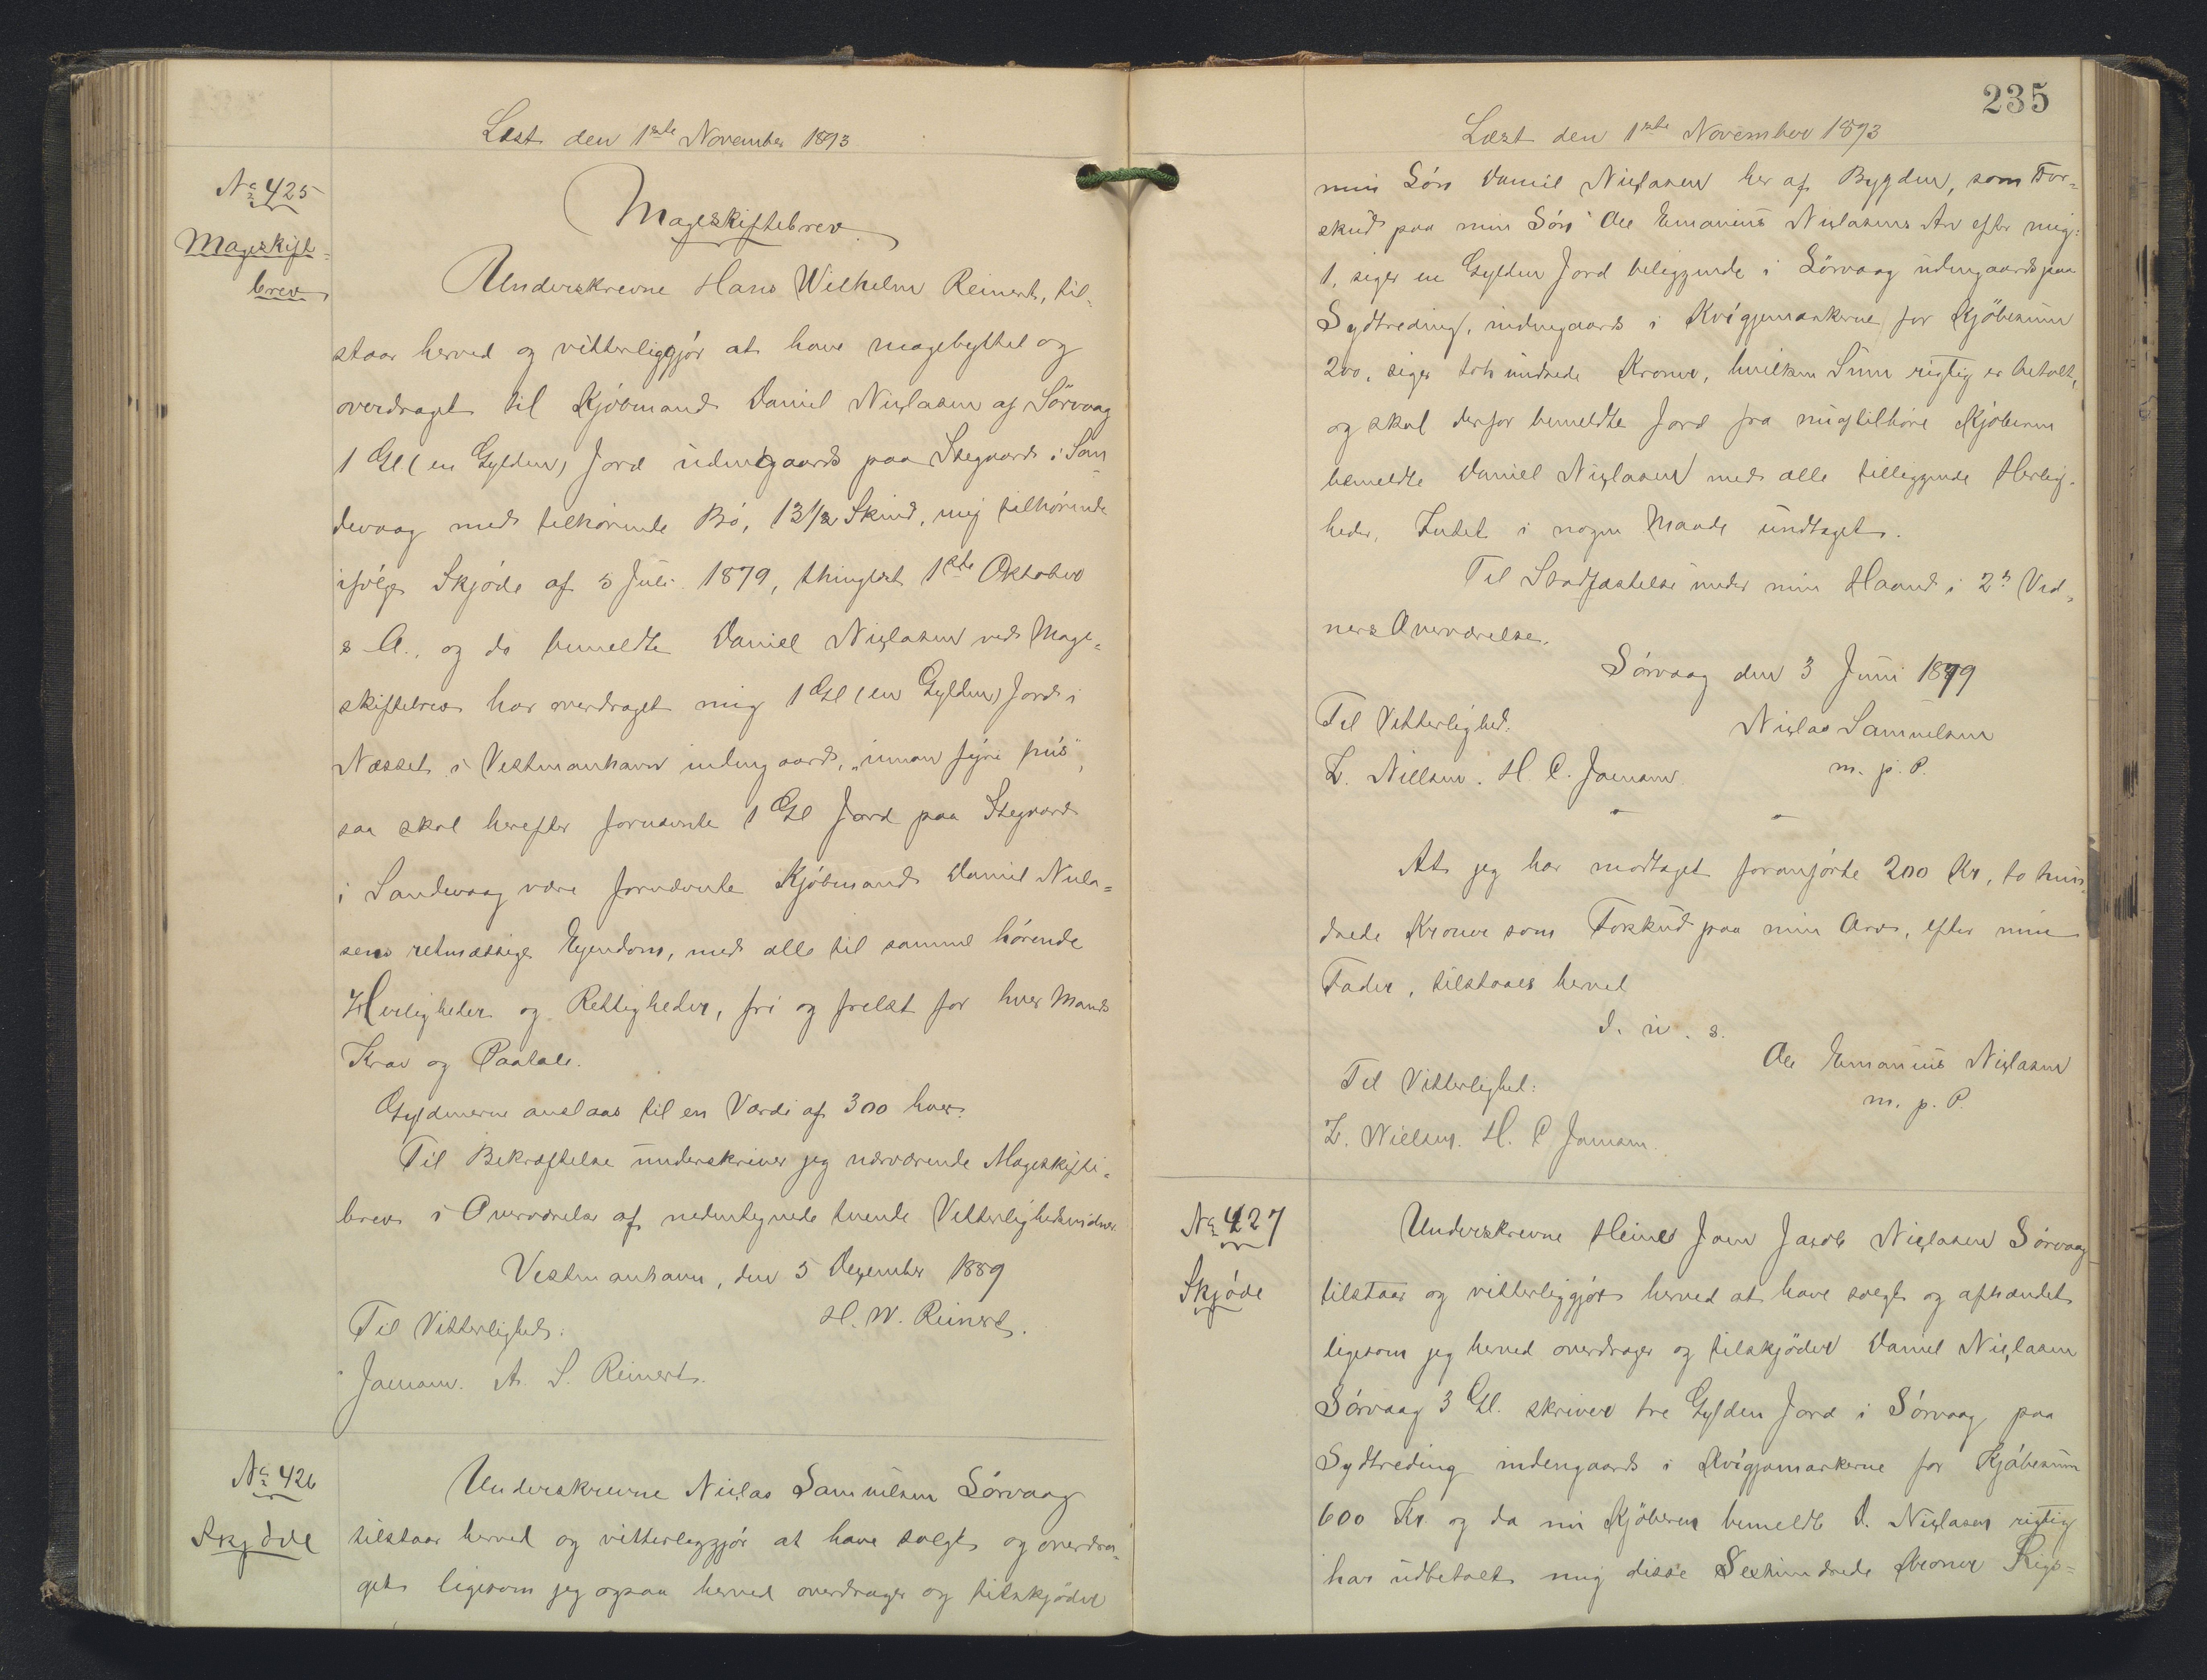 Læst den 1ste November 1893
No 425
Mageskifte=
brev
Mageskiftebrev.
Underskrevne Hans Wilhelm Reinert, til-
staar herved og vitterliggjör at have magebyttet og
overdraget til Kjöbmand Daniel Niclasen af Sörvaag
1 Gl (en Gylden) Jord udengaards paa Stegaard i San
devaag med tilhörende Bö, 13 1/2 Skind, mig tilhörende
ifölge Skjöde af 5 Juli 1879, thinglæst 1ste Oktober
s A., og da bemeldte Daniel Niclasen ved Mage-
skiftebrev har overdraget mig 1 Gl (en Gylden) Jord i
Næsset i Vestmanhavn indengaards,
saa skal herefter fornævnte 1 Gl Jord paa Stegaard
i Sandevaag være fornævnte Kjöbmand Daniel Nicla=
sens retmæssige Ejendom, med alle til samme hörende
Herligheder og Rettigheder, fri og frelst for hver Mands
Krav og Paatale.
Gyldenerne anslaas til en Værdi af 300 hver.
Til Bekræftelse underskriver jeg nærværende Mageskifte-
brev i Overværelse af nedentegnede tvende Vitterlighedsvidner
Vestmanhavn, den 5 Dezember 1889
Til Vitterlighed: H. W. Reinert.
Joensen. A. S. Reinert.
No 426
Skjöde
Underskrevne Niclas Samuelsen Sörvaag
tilstaar herved og vitterliggjör at have solgt og overdra-
get ligesom jeg ogsaa herved overdrager og tilskjöder
235
Læst den 1ste November 1893
min Sön Daniel Niclasen her af Bygden, som For-
skud paa min Sön Ole Emanius Niclasens Arv efter mig:
1, siger en Gylden Jord beliggende i Sörvaag udengaards paa
Sydtreding, indengaards i Kvigjemarkerne for Kjöbesum
200, siger tohundrede Kroner, hvilken Sum rigtig er betalt,
og skal derfor bemeldte Jord fra mig tilhöre Kjöberen
bemeldte Daniel Niclasen med alle tilliggende Herlig-
heder, Intet i nogen Maade undtaget.
Til Stadfæstelse under min Haand i 2de Vid-
ners Overværelse.
Sörvaag den 3 Juni 1879
Til Vitterlighed: Niclas Samuelsen
Z. Nielsen. H. C. Joensen m. p. P.
At jeg har modtaget foranförte 200 Kr, to hun-
drede Kroner som Forskud paa min Arv, efter min
Fader, tilstaaes herved
D. u. s.
Ole Emanius Niclasen
Til Vitterlighed: m. p. P.
Z. Nielsen. H. C Joensen.
No 427
Skjöde
Underskrevne Heine Joen Jacob Niclasen Sörvaag
tilstaar og vitterliggjör herved at have solgt og afhændet
ligesom jeg herved overdrager og tilskjöder Daniel Niclasen
Sörvaag 3 Gl. skriver tre Gylden Jord i Sörvaag paa
Sydtreding indengaards i Kvigjamarkerne for Kjöbesum
600 Kr. og da nu Kjöberen bemeldte D. Niclasen rigtig
har udbetalt mig disse Sexhundrede Kroner Rigs=